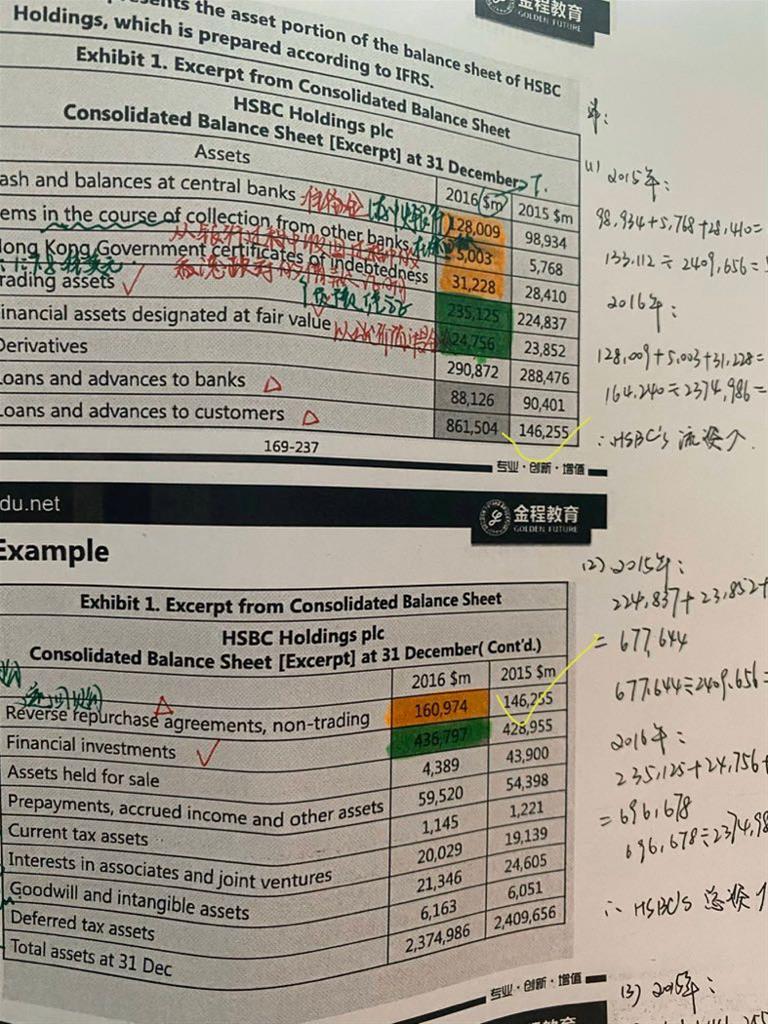 金程教育
GOLDEN FUTURE
the asset portion of the balance sheet of HSBC
Holdings, which is prepared according to IFRS.
Exhibit 1. Excerpt from Consolidated Balance Sheet
HSBC Holdings plc
Consolidated Balance Sheet [Excerpt] at 31 December
Assets 2016 $m 2015 $m
ash and balances at central banks 128,009 98,934
ems in the course of collection from other banks 5,003 5,768
Hong Kong Government certificates of indebtedness 31,228 28,410
rading assets 235,125 224,837
inancial assets designated at fair value 24,756 23,852
Derivatives 290,872 288,476
Loans and advances to banks 88,126 90,401
Loans and advances to customers 861,504 146,255
169-237
专业·创新·增值
du.net
金程教育
GOLDEN FUTURE
Example
Exhibit 1. Excerpt from Consolidated Balance Sheet
HSBC Holdings plc
Consolidated Balance Sheet [Excerpt] at 31 December( Cont'd.)
2016 $m 2015 $m
Reverse repurchase agreements, non-trading 160,974 146,255
Financial investments 436,797 428,955
Assets held for sale 4,389 43,900
Prepayments, accrued income and other assets 59,520 54,398
Current tax assets 1,145 1,221
Interests in associates and joint ventures 20,029 19,139
Goodwill and intangible assets 21,346 24,605
Deferred tax assets 6,163 6,051
Total assets at 31 Dec 2,374,986 2,409,656
专业·创新·增值
(1) 2015年:
98,934+5,768+28,410=
133,112÷2409,656=
2016年:
128,009+5,003+31,228=
164,240÷2374,986=
∴HSBC's 流资个
(2) 2015年:
224,837+23,852+
=677,644
677,644÷2409,656=
2016年:
235,125+24,756+
=696,678
696,678÷2374,98
∴ HSBC's 总资个
(3) 2015年: